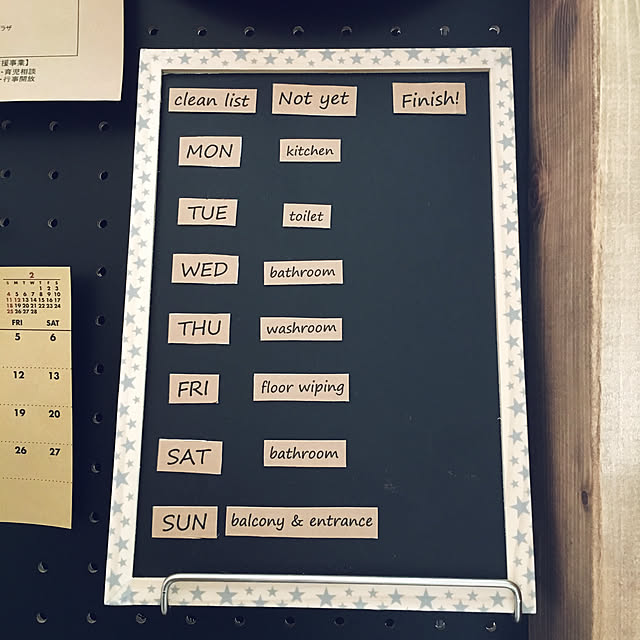 プラザ
援事業】
・育児相談
・行事開放
clean list Not yet Finish!
MON kitchen
TUE toilet
WED bathroom
THU washroom
FRI floor wiping
SAT bathroom
SUN balcony & entrance
2
S M T W T F S
1 2 3
4 5 6 7 8 9 10
11 12 13 14 15 16 17
18 19 20 21 22 23 24
25 26 27 28
FRI SAT
5 6
12 13
19 20
26 27